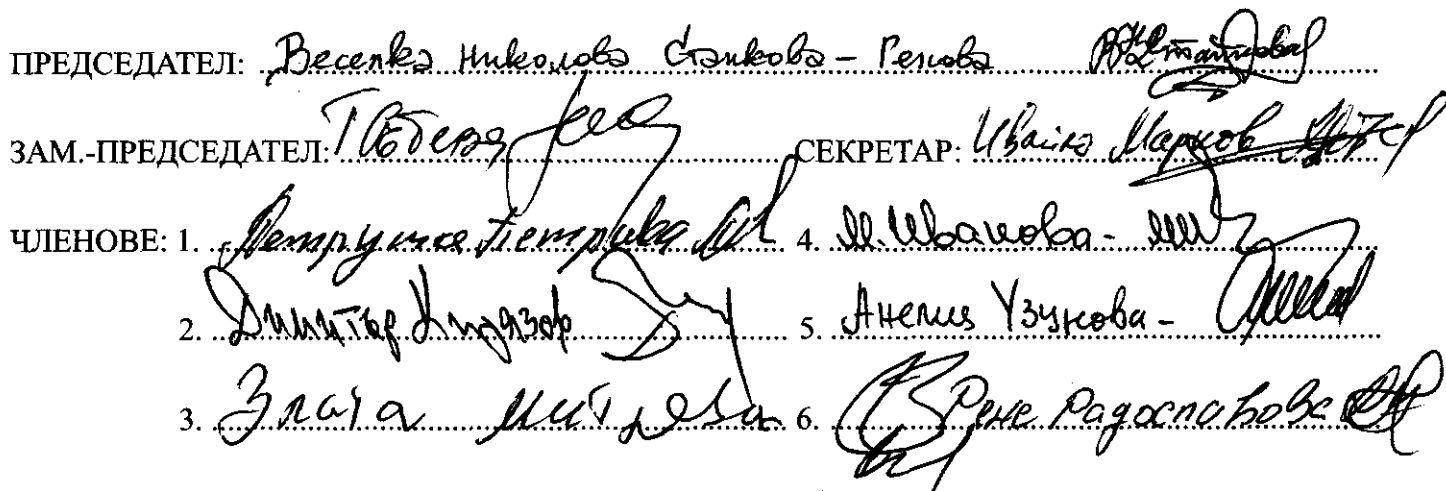 ПРЕДСЕДАТЕЛ: Веселка Николова Станкова - Генова
ЗАМ.-ПРЕДСЕДАТЕЛ: СЕКРЕТАР: Ивайло Марков
ЧЛЕНОВЕ: 1. Петрушка Петрова 4. М. Иванова -
2. Димитър 5. Анелия Узунова -
3. Злата Митрева 6. Рене Радославова